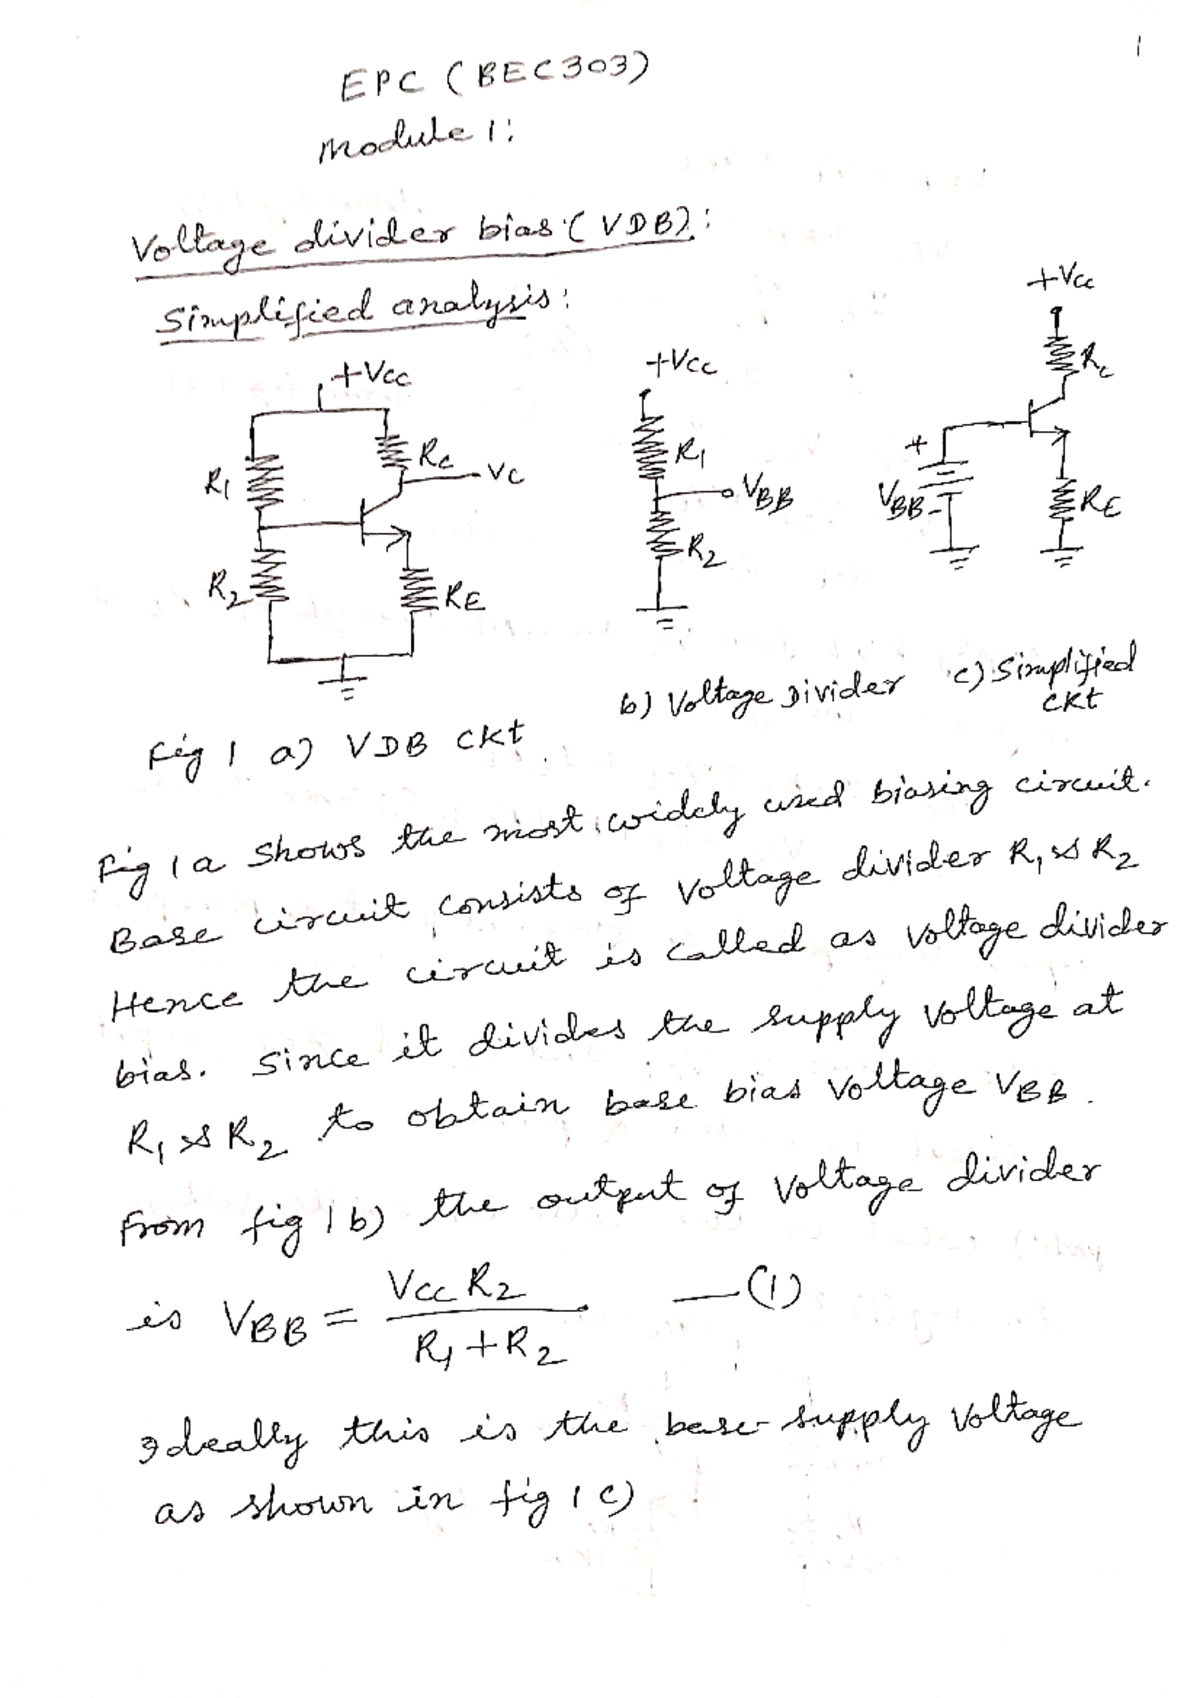 1
EPC (BEC303)
Module 1:
Voltage divider bias (VDB):
Simplified analysis:
+Vcc
R1
Rc
Vc
R2
RE
+Vcc
R1
VBB
R2
+Vcc
Rc
+
VBB
-
RE
b) Voltage Divider
c) Simplified
ckt
Fig 1 a) VDB ckt
Fig 1a Shows the most widely used biasing circuit.
Base circuit consists of Voltage divider R1 & R2
Hence the circuit is called as voltage divider
bias. Since it divides the supply voltage at
R1 & R2 to obtain base bias Voltage VBB.
From fig 1b) the output of Voltage divider
is VBB = Vcc R2 / R1 + R2 — (1)
Ideally this is the base supply Voltage
as shown in fig 1 c)